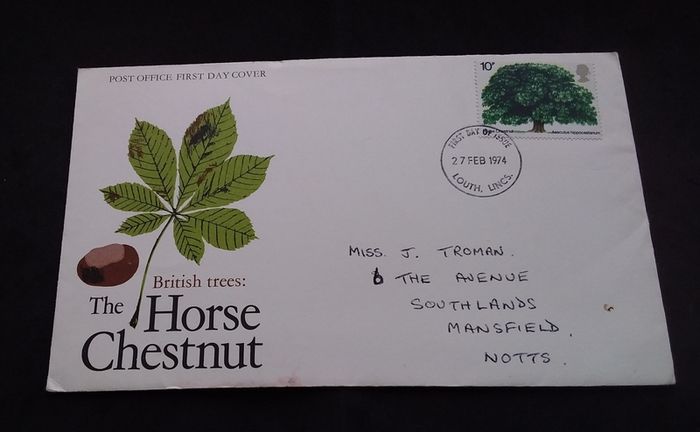 POST OFFICE FIRST DAY COVER
10P
Aesculus hippocastanum
FIRST DAY OF ISSUE
27 FEB 1974
LOUTH, LINCS.
MISS. J. TROMAN.
6 THE AVENUE
SOUTHLANDS
MANSFIELD,
NOTTS.
British trees:
The Horse
Chestnut